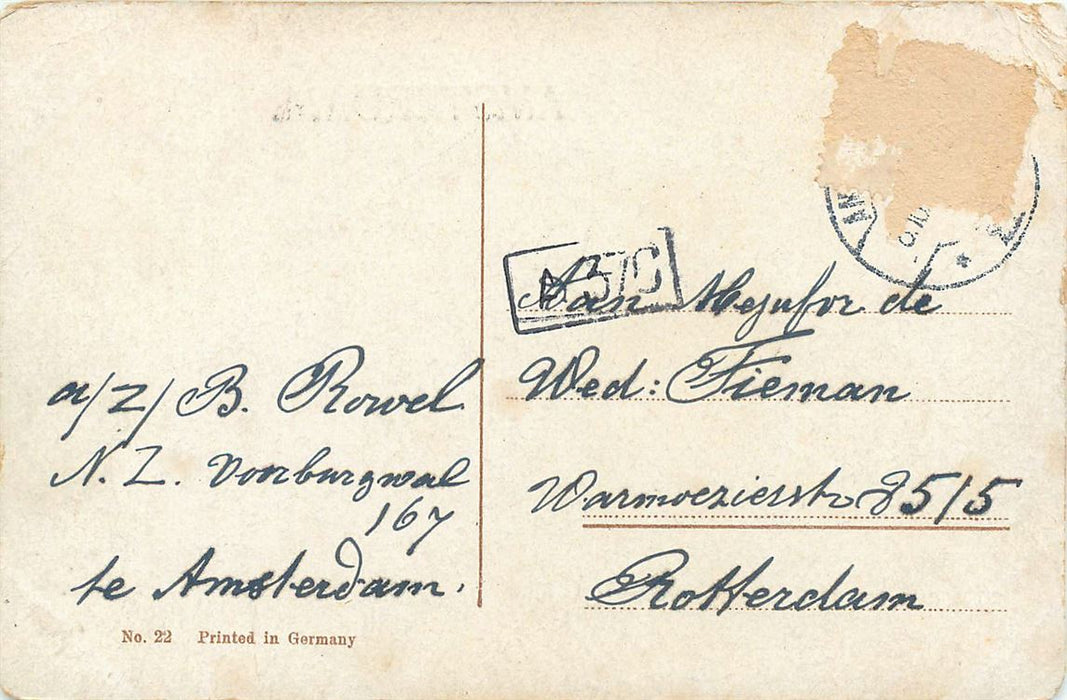 a/z/ B. Rowel
N. Z. Voorburgwal
167
te Amsterdam.
No. 22 Printed in Germany
Aan Mejufvr de
Wed: Fieman
Warmoezierstr 85/5
Rotterdam